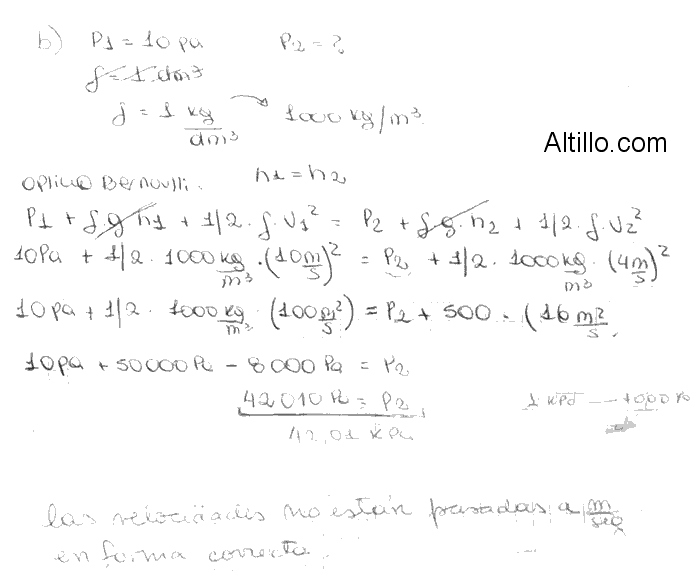 b) P1 = 10 pa P2 = ?
δ = 1 dm3
δ = 1 kg/dm³ → 1000 kg/m³
Altillo.com
Aplico Bernoulli. h1 = h2
P1 + δ g h1 + 1/2 . δ . V1² = P2 + δ g . h2 + 1/2 . δ . V2²
10Pa + 1/2 . 1000 kg/m³ . (10 m/s)² = P2 + 1/2 . 1000 kg/m³ . (4 m/s)²
10 pa + 1/2 . 1000 kg/m³ (100 m²/s) = P2 + 500 . (16 m²/s
10pa + 50000 Pa - 8000 Pa = P2
42010 Pa = P2 1 KPa --- 1000 Pa
42,01 KPa
las velocidades no están pasadas a m/seg
en forma correcta.